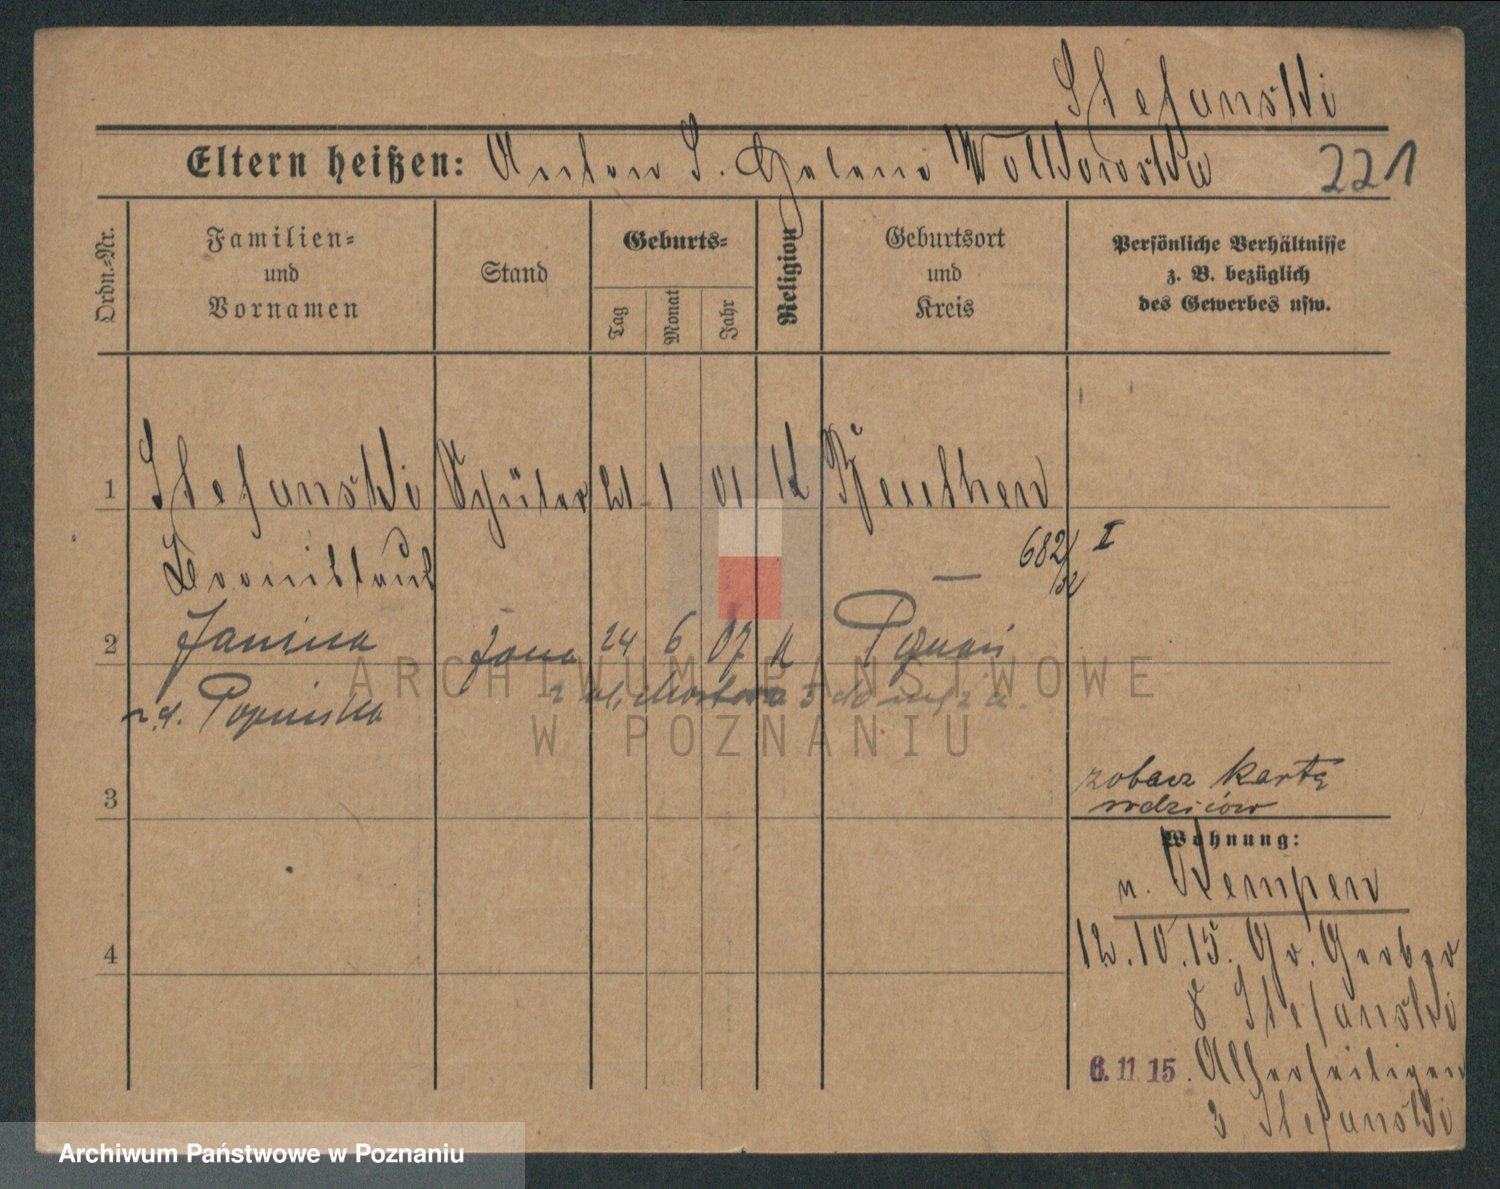 Stefanski
Eltern heißen: Anton S. Helene Wolkowska 221
Ordn.-Nr.
Familien-
und
Vornamen
Stand
Geburts-
Tag
Monat
Jahr
Religion
Geburtsort
und
Kreis
Persönliche Verhältnisse
z. B. bezüglich
des Gewerbes usw.
1 Stefanski Schüler 21 1 01 K Beuthen
682/32 I
Bronislaus
2 Janina żona 24 6 07 k Poznań
z d. Popińska
zobacz kartę
rodziców
3
Wohnung:
n. Kempen
4
12.10.15. Gr. Gerber
8 Stefanski
6.11 15. Allerheiligen
3 Stefanski
ARCHIWUM PAŃSTWOWE
W POZNANIU
Archiwum Państwowe w Poznaniu